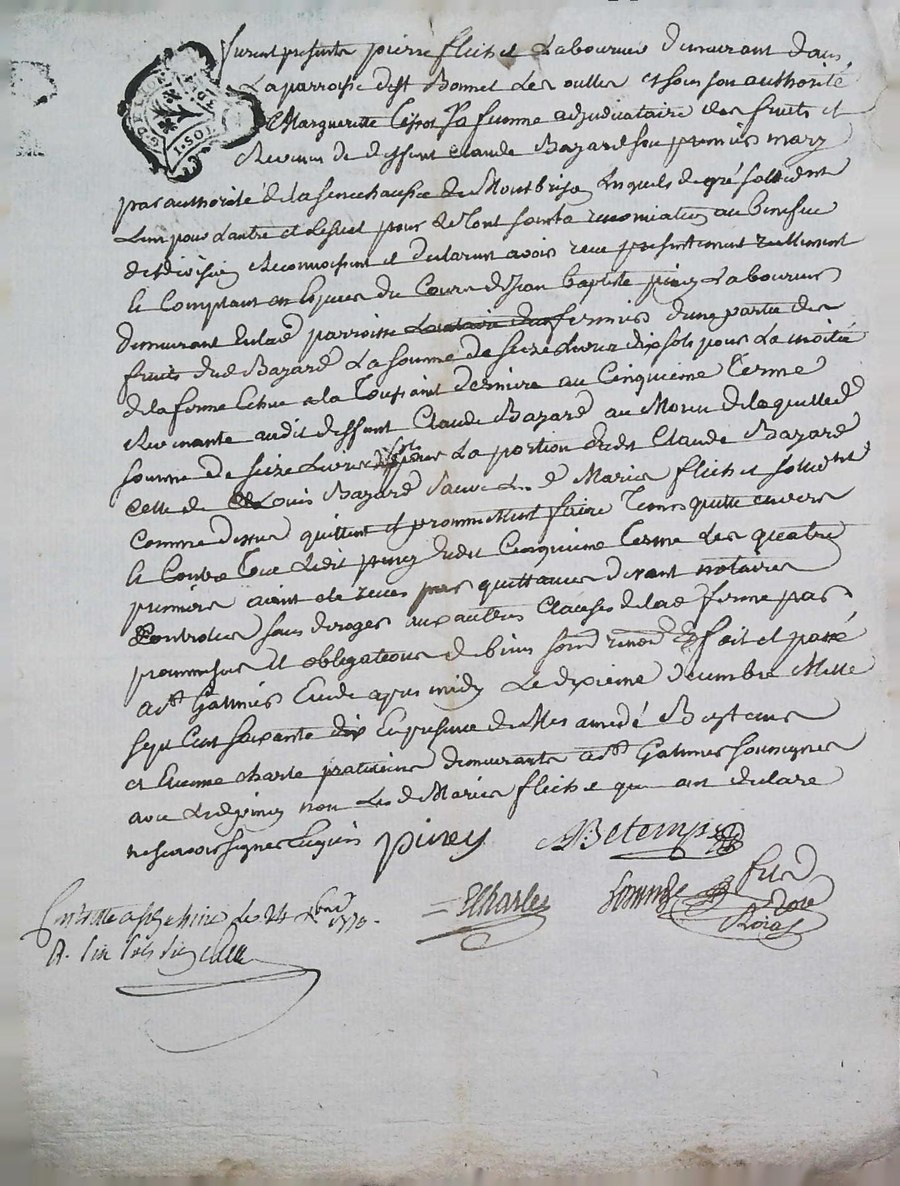 furent presents pierre flichet Laboureur demeurant dans
La parroisse de st Bonnet Les oulles et sous son authorité
Margueritte sa femme adjudicataire des fruits et
Revenus de deffunt Claude Bazard son premier mary
par authorité de la senechaussée de Montbrison Lesquels de gré sollidt
L'un pour L'autre et le seul pour le tout sans renonciation au benefice
de division Reconnoissent et declarent avoir receu presentement reellement
et Comptant en Especes du Cours de Jean baptiste piney Laboureur
demeurant en lad parroisse fermier d'une partie des
fruits dud Bazard La somme de seize Livres dix sols pour La moitié
de la ferme Echue a la Toussaint derniere au Cinquieme Terme
Revenante audit deffunt Claude Bazard au Moyen de laquelle d
somme de seize Livres dix sols pour La portion dudt Claude Bazard
celle de Louis Bazard sauve Les d Mariés flichet sollidt
comme dessus quittent et promettent faire Tenir quitte envers
et Contre Tous Ledit piney dudt Cinquieme Terme Les quatre
premiers aiant été receus par quittances devant notaires
Controlées sans deroger aux autres Clauses de lad ferme par
promesses et obligations de biens soumd renond Et fait et passé
a st Galmier Etude apres midy Le dixieme decembre Mille
sept Cent soixante dix En presence de Mes amedé Betemps
et Etienne charle praticiens demeurants a st Galmier soussignes
avec Led piney non Les d Mariés flichet qui ont declaré
ne savoir signer Enquis piney ABetemps
Controllé a St Galmier le 24 xbre 1770.
R. six sols six
ECharles